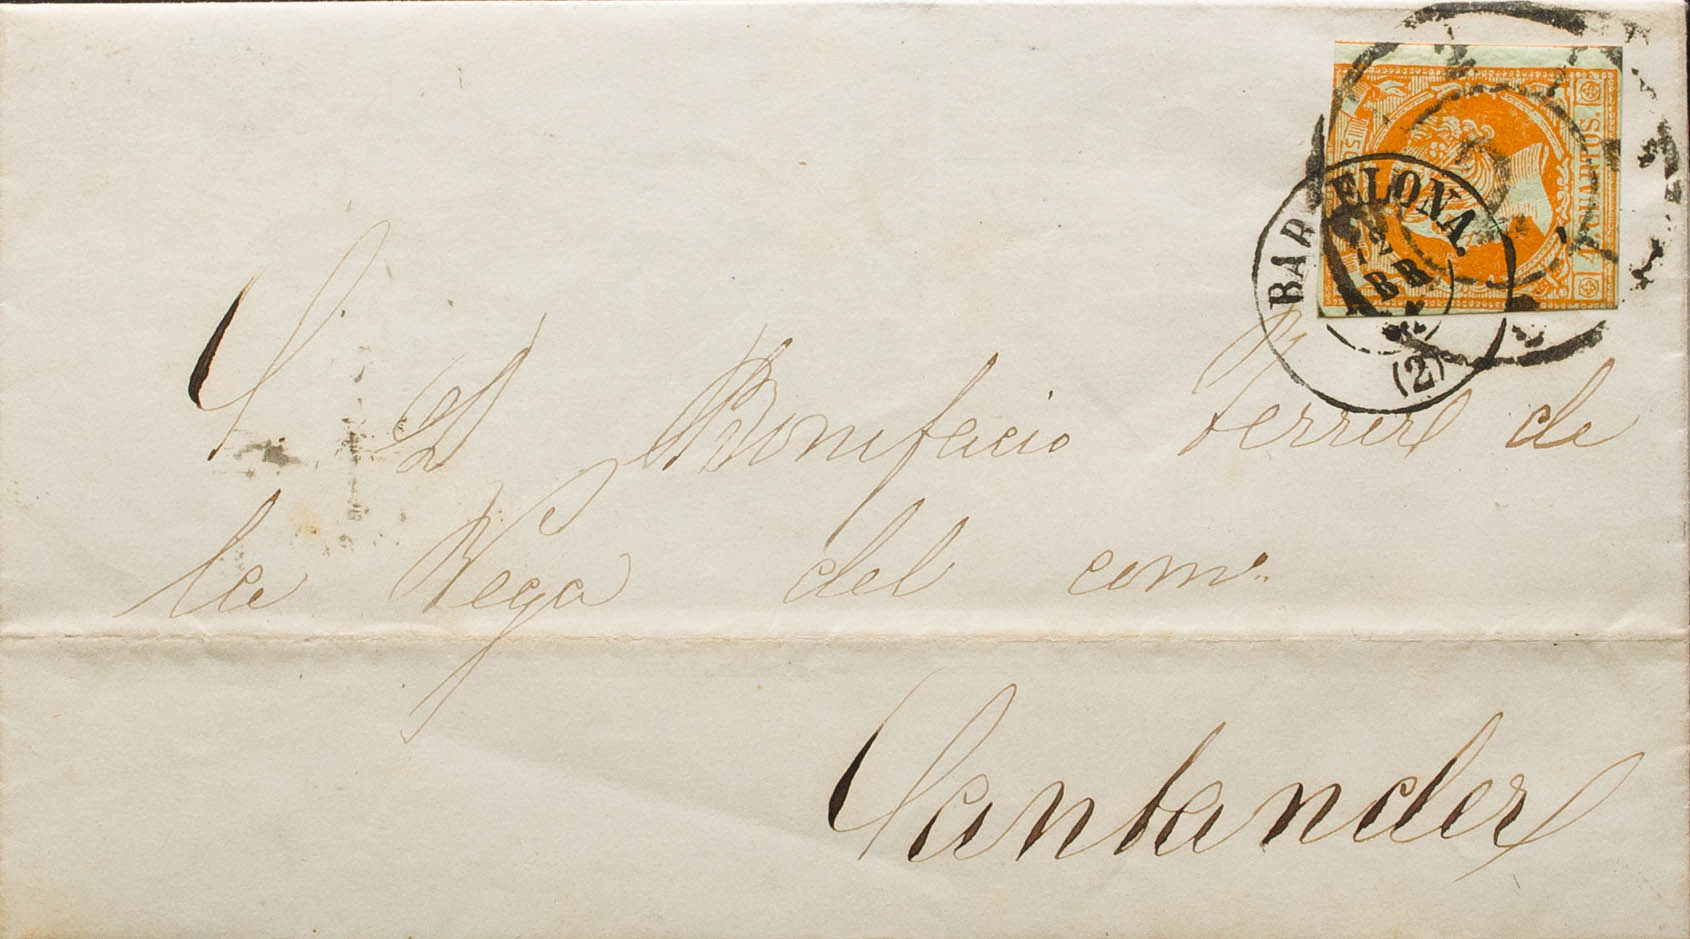 BARCELONA.
12
(2)
4 CUARTOS.
S. D. Bonifacio Ferrer de
la Vega del comº
Santander